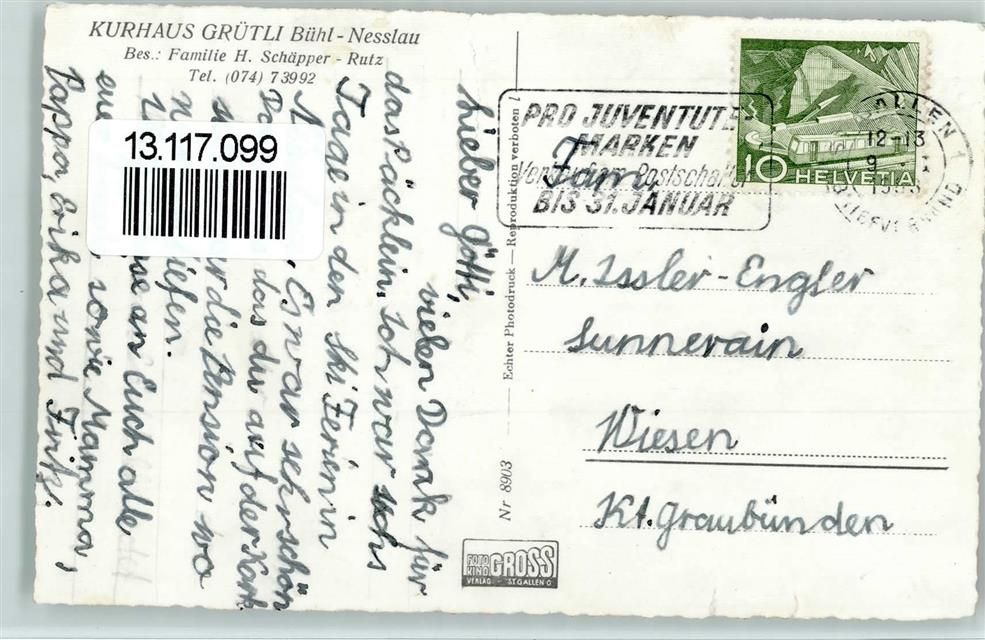 KURHAUS GRÜTLI Bühl-Nesslau
Bes.: Familie H. Schäpper - Rutz
Tel. (074) 7 39 92
13.117.099
Lieber Götti,
vielen Dank für
das Päcklein. Ich war sechs
Tage in den Ski Ferien in
Es war sehr schön
das du auf der Kart
die Pension wo
an Euch alle
sowie Mamma,
Pappa, Erika und Fritz.
Nr 8903 — Echter Photodruck — Reproduktion verboten !
FOTO KINO GROSS
VERLAG - ST. GALLEN O
PRO JUVENTUTE
MARKEN
BIS 31. JANUAR
ST. GALLEN 1
12-13
BRIEFVERSAND
10 HELVETIA
Fam.
M. Issler-Engler
Sunnerain
Wiesen
Kt. Graubünden